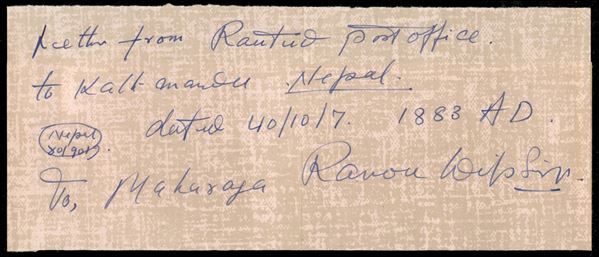 Letter from Rautud post office.
to Katt mandu Nepal.
dated 40/10/7. 1883 AD.
Nepal
To, Maharaja Ranou